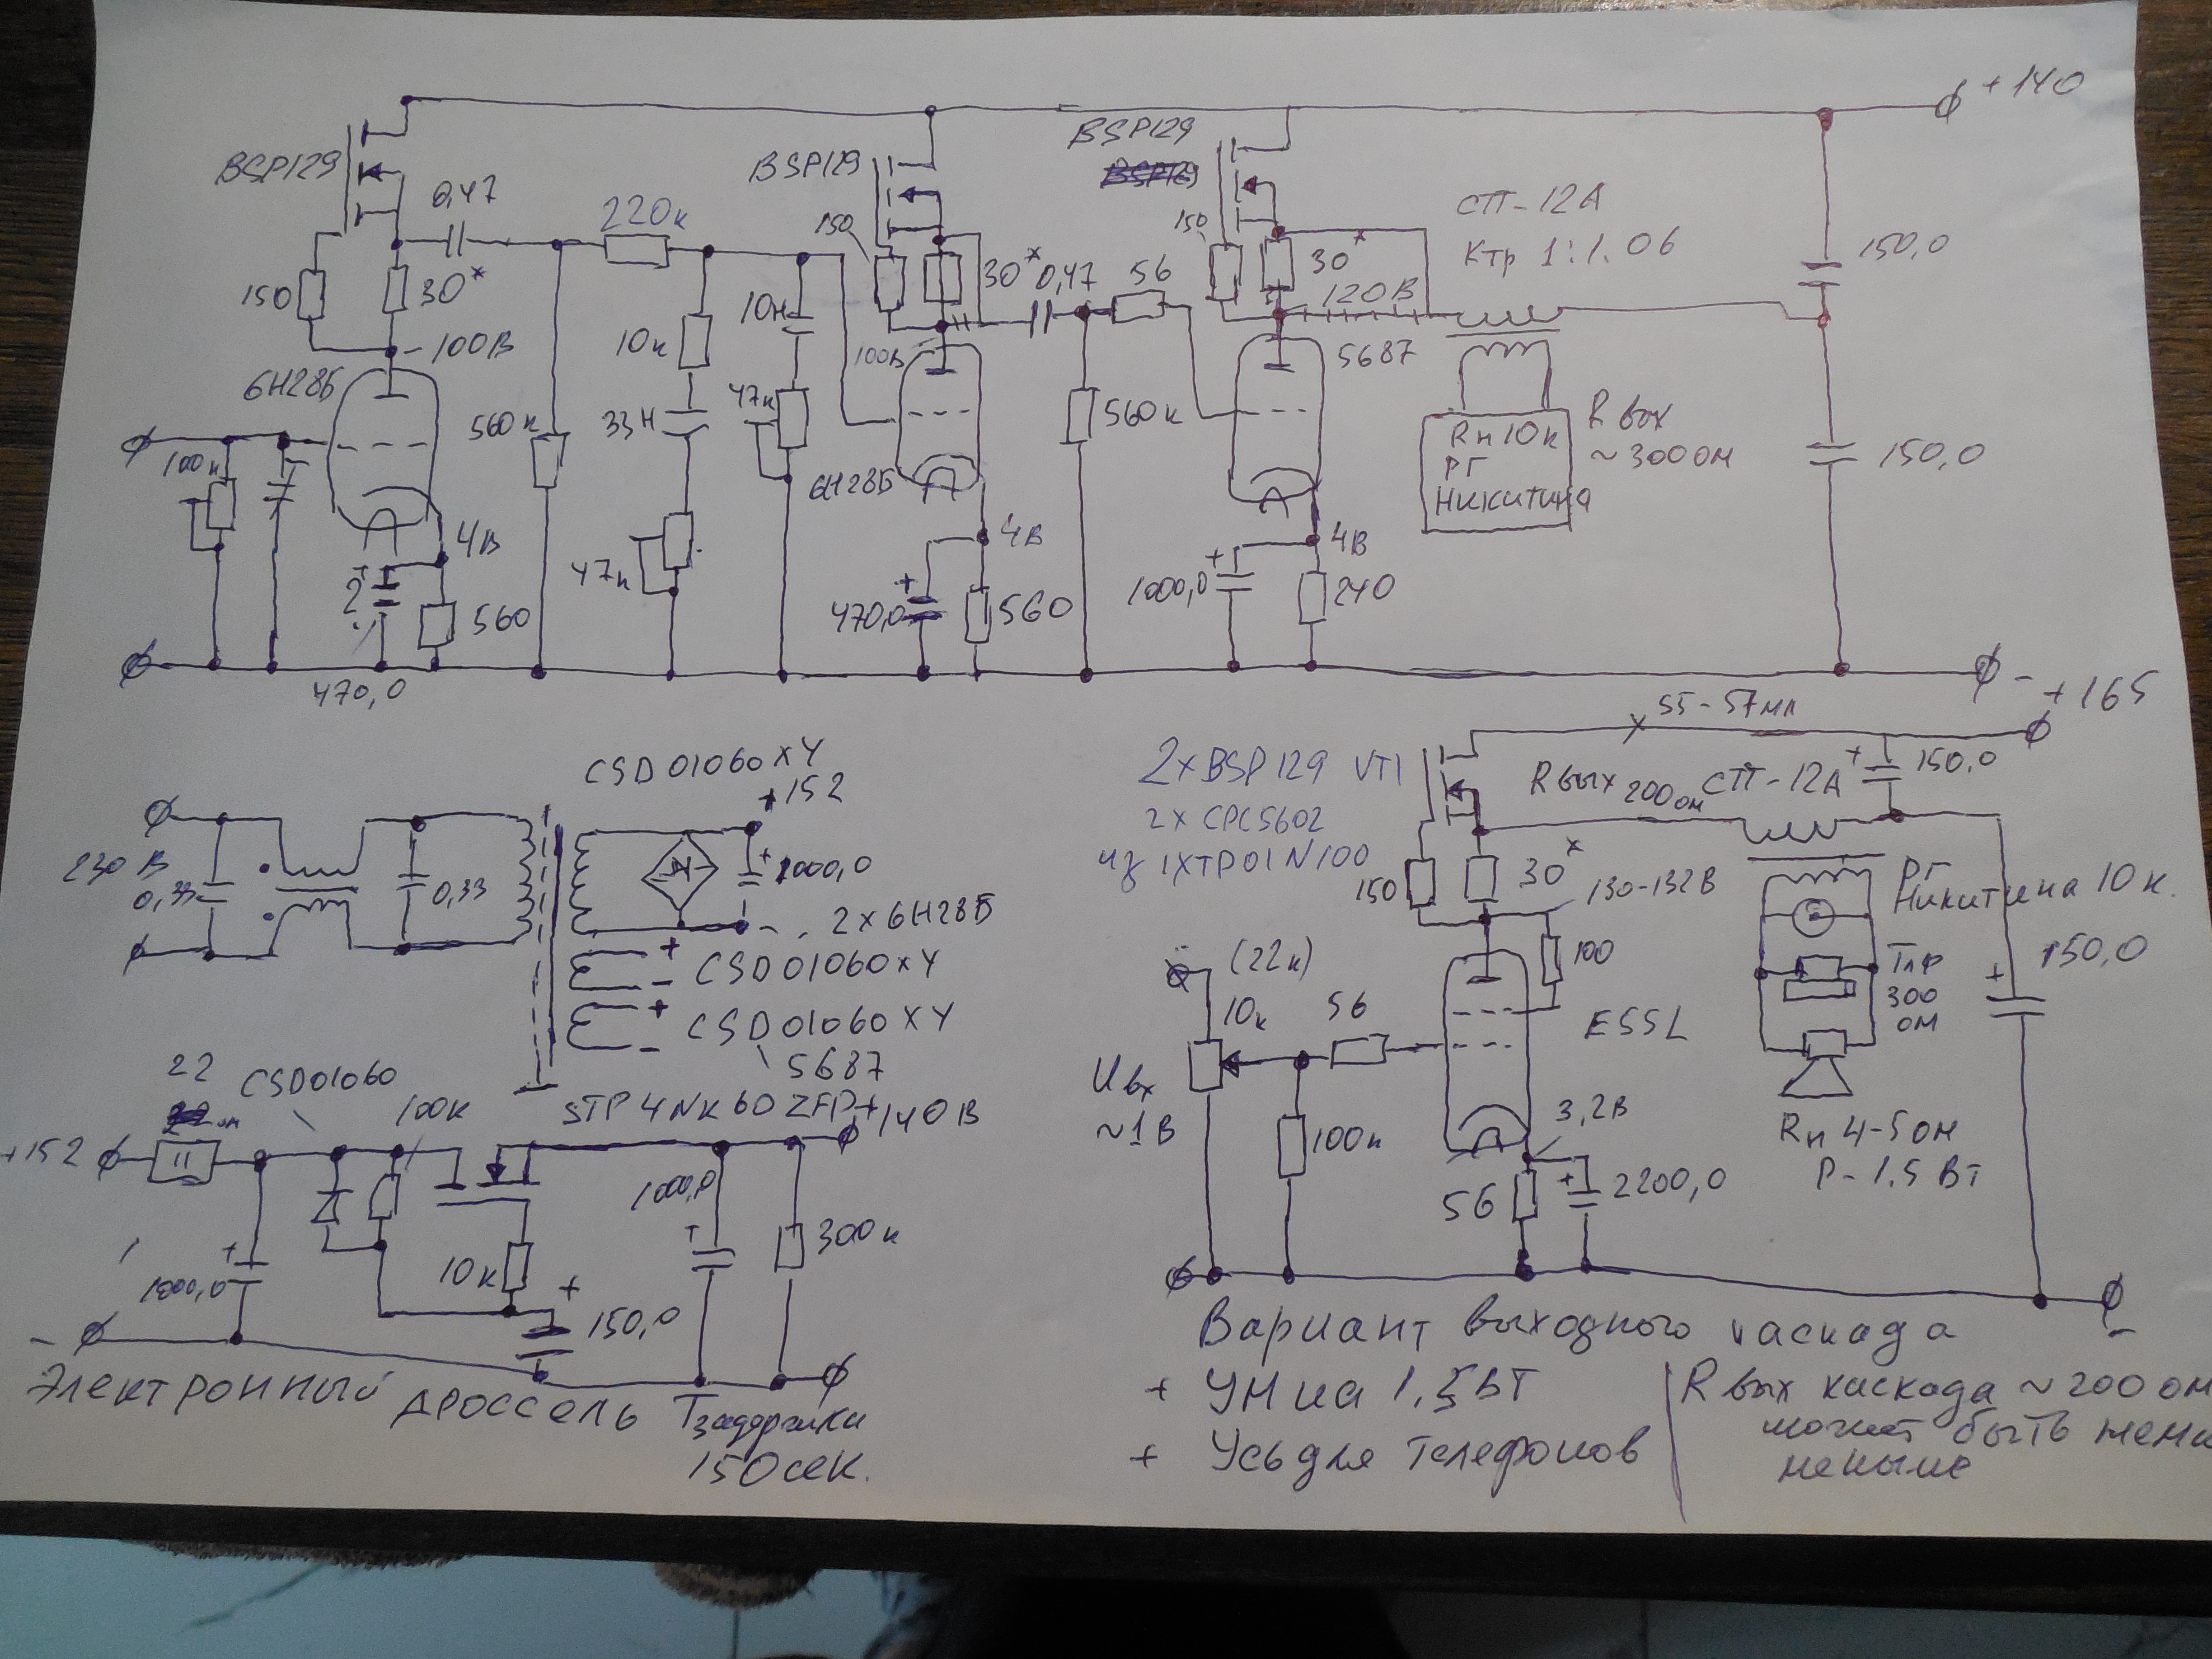 +140
BSP129
BSP129
BSP129
0,47
220к
150
150
СТП-12А
Ктр 1:1.06
150
30*
30*
0,47
56
30*
120В
150,0
-100В
10к
10н
100В
5687
6Н28Б
560к
33Н
47к
560к
Rн 10к
РГ
Никитина
R вых
~300 ом
150,0
100к
6Н28Б
4В
47к
4В
4В
560
470,0
560
1000,0
240
470,0
-
+165
55-57мА
CSD01060x4
+152
2xBSP129 VT1
2x CPC5602
1XTP01N100
R вых 200ом
СТП-12А
150,0
230 В
0,33
0,33
1000,0
150
30*
130-132В
РГ
Никитина 10к.
- . 2x6Н28Б
+
- CSD01060x4
+
- CSD01060x4
5687
(22к)
10к
56
100
E55L
Тлф
300
ом
150,0
22
CSD01060
100к
STP4NK60ZFP
+140В
Uвх
~1В
3,2В
Rн 4-5ом
P-1,5 Вт
+152
1000,0
300к
100к
56
2200,0
10к
1000,0
150,0
-
-
Электронный дроссель Тзадержки
150сек.
Вариант выходного каскада
+ УН на 1,5Вт
+ Усь для телефонов
R вых каскада ~200 ом
может быть
меньше